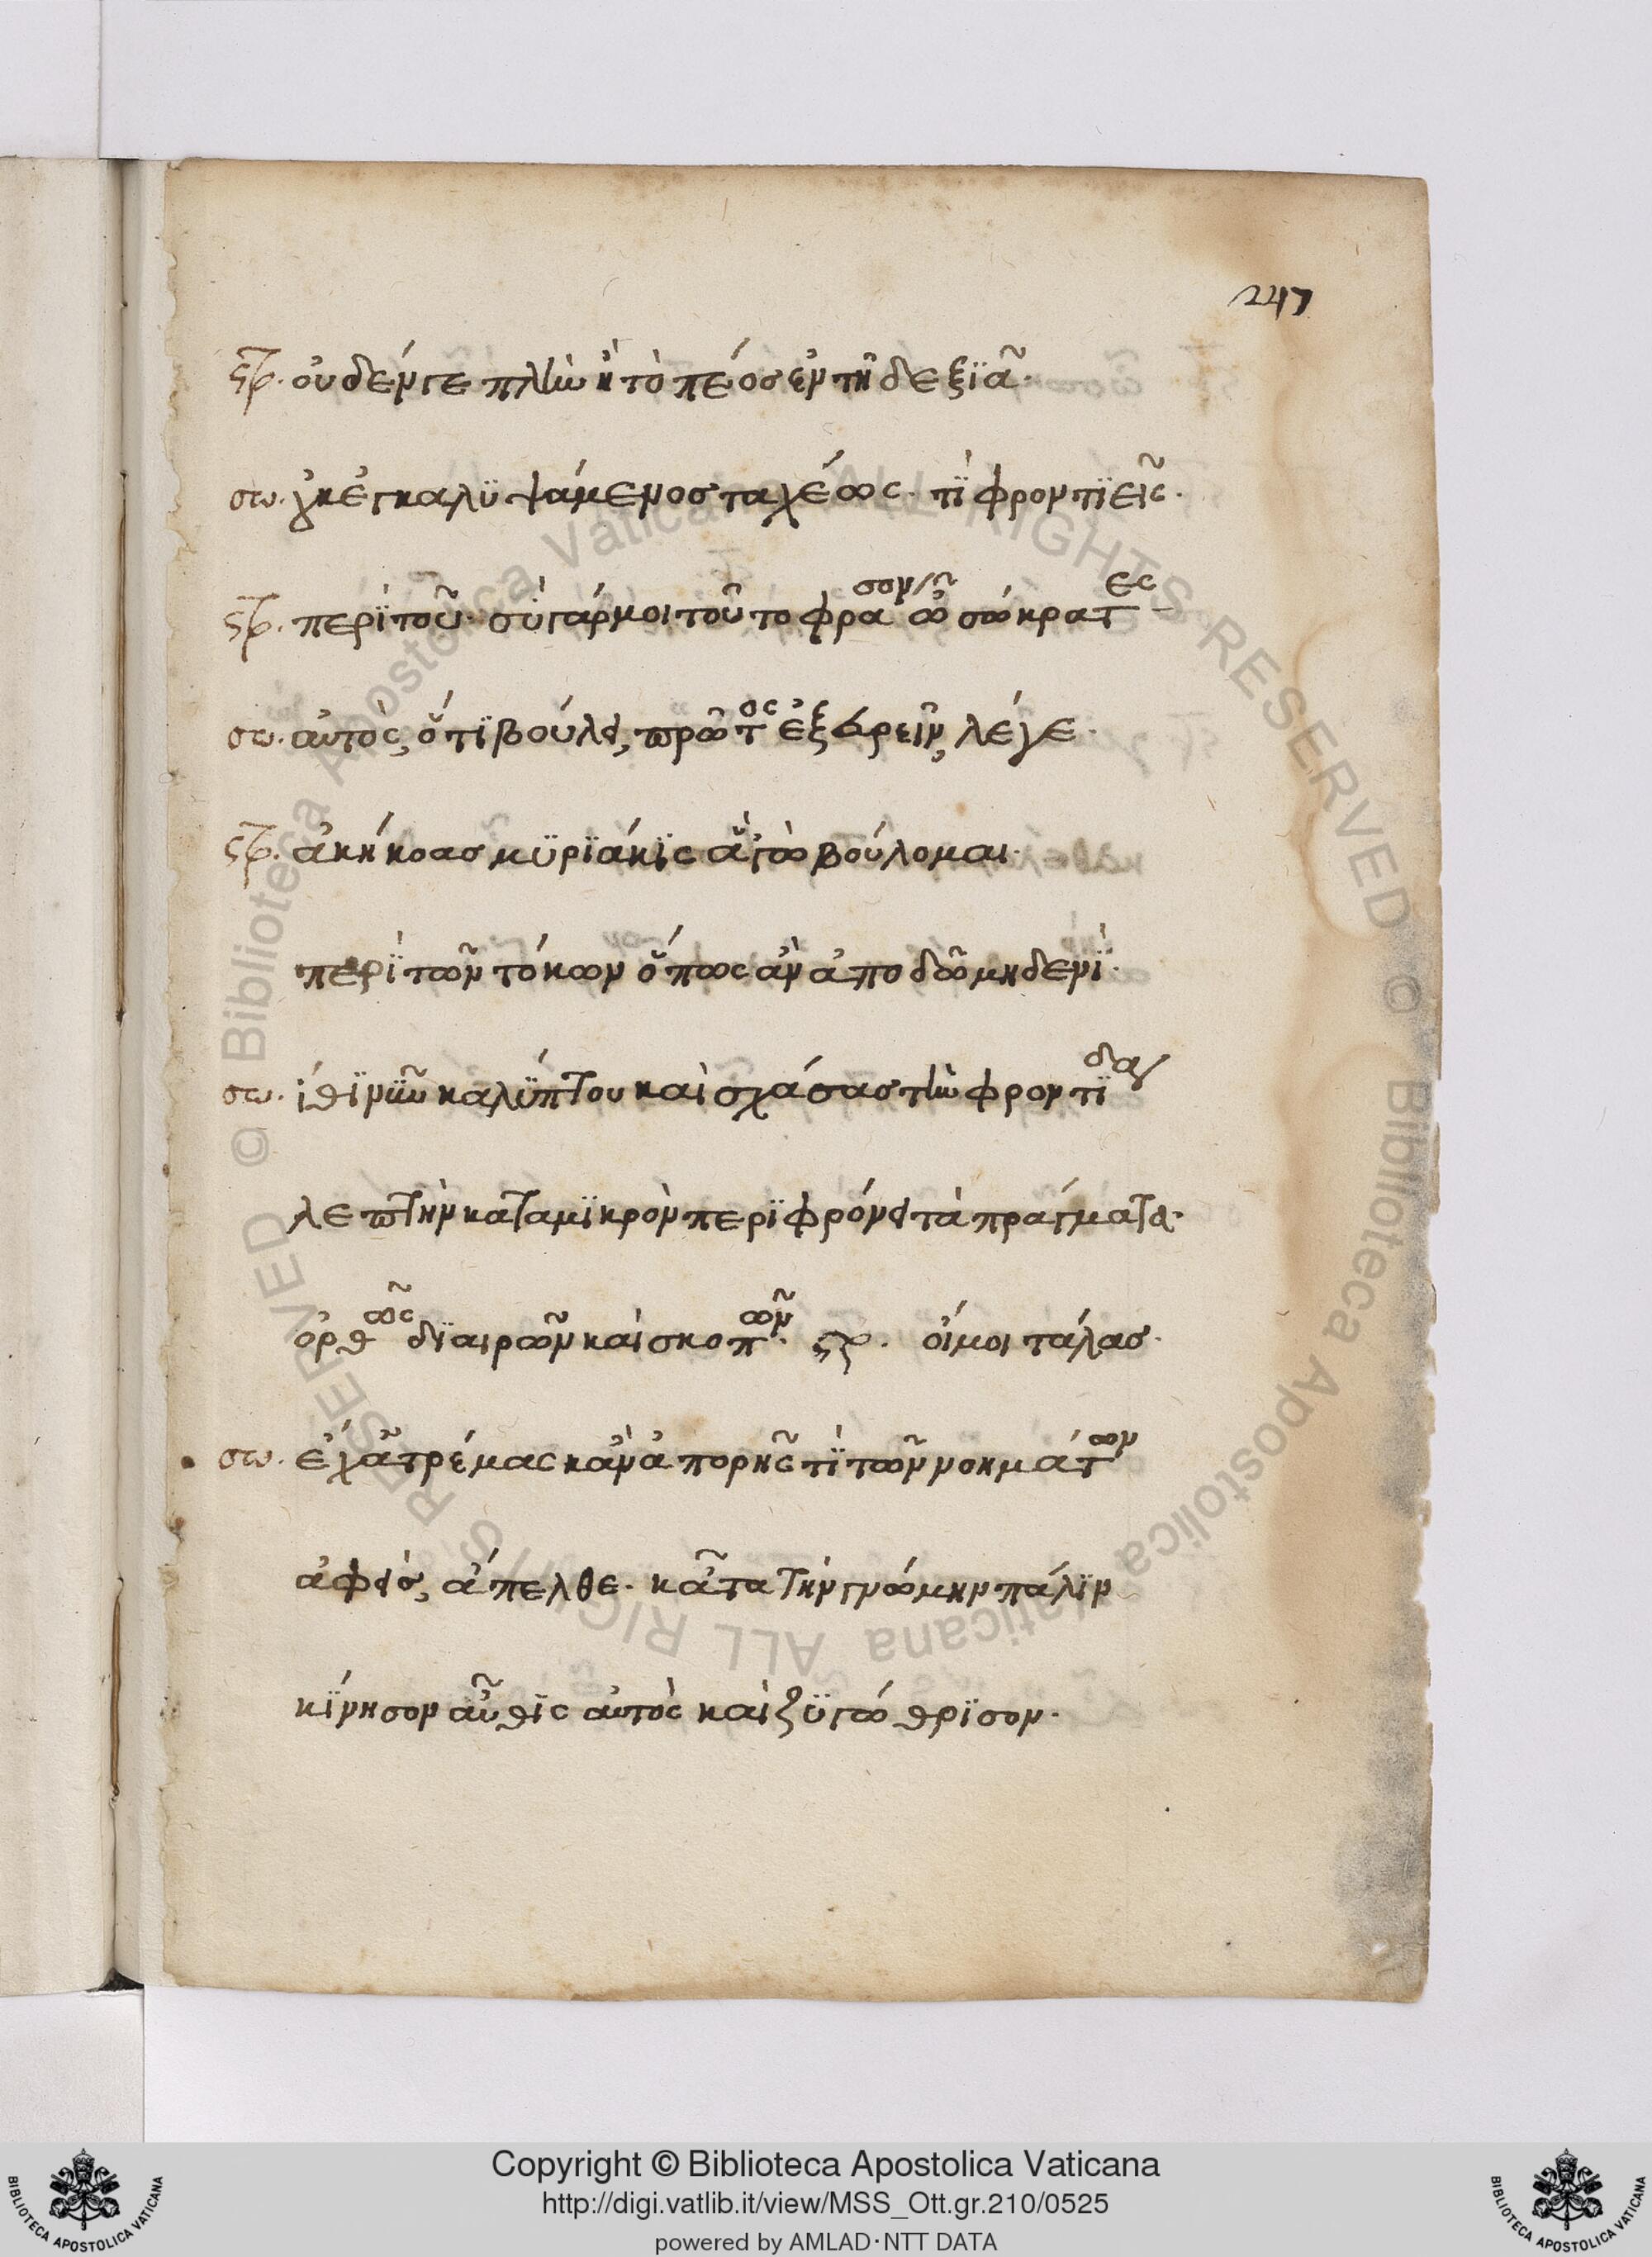 247
στρ. οὐδέν γε πλὴν ἢ τὸ πέος ἐν τῆ δεξϊᾶ·
σω. οὐκ ἐγκαλϋψάμενος ταχέως· τὶ φροντϊεῖς·
στρ. περὶ τοῦ· σὺ γάρ μοι τοῦτο φράσον ὦ σώκρατες
σω. αὐτὸς, ὅτι βούλει, πρῶτος ἐξευρεῖν, λέγε·
στρ. ἀκήκοας μϋρϊάκϊς ἃ 'γὼ βούλομαι·
περὶ τῶν τόκων ὅπως ἂν ἀποδῶ μηδενὶ·
σω. ἴθϊ νῦν καλύπτου καὶ σχάσας τὴν φροντίδα
λεπτὴν κατα μϊκρὸν περϊφρόνει τὰ πράγματα·
ὀρθῶς δϊαιρῶν καὶ σκοπῶν· στρ. οἴμοι τάλας·
σω. ἔχ' ἀτρέμας κἂν ἀπορῆς τὶ τῶν νοημάτων
ἀφεὶς, ἄπελθε· κᾆτα τὴν γνώμην πάλϊν
κίνησον αὖθϊς αὐτὸς καὶ ζϋγώθρϊσον·
© Biblioteca Apostolica Vaticana ALL RIGHTS RESERVED © Biblioteca Apostolica Vaticana ALL RIGHTS RESERVED
Copyright © Biblioteca Apostolica Vaticana
http://digi.vatlib.it/view/MSS_Ott.gr.210/0525
powered by AMLAD·NTT DATA
BIBLIOTECA APOSTOLICA VATICANA
BIBLIOTECA APOSTOLICA VATICANA